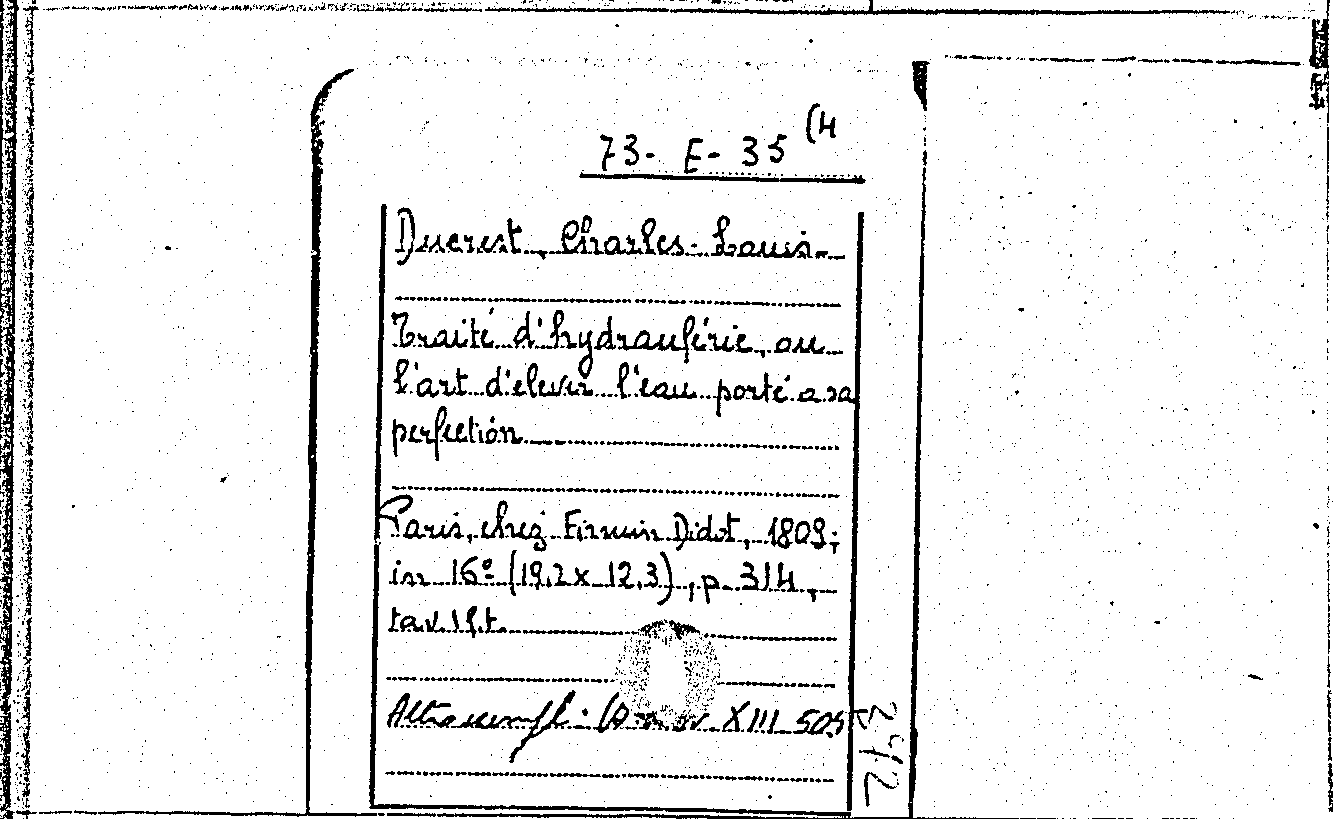 73- E- 35 (4
Ducrest, Charles-Louis
Traité d'hydraulérie, ou
l'art d'elever l'eau porté a sa
perfection
Paris, chez Firmin Didot, 1809;
in 16º (19,2 x 12,3), p. 314,
tav. 1 f.t.
Altro esempl: XIII 505